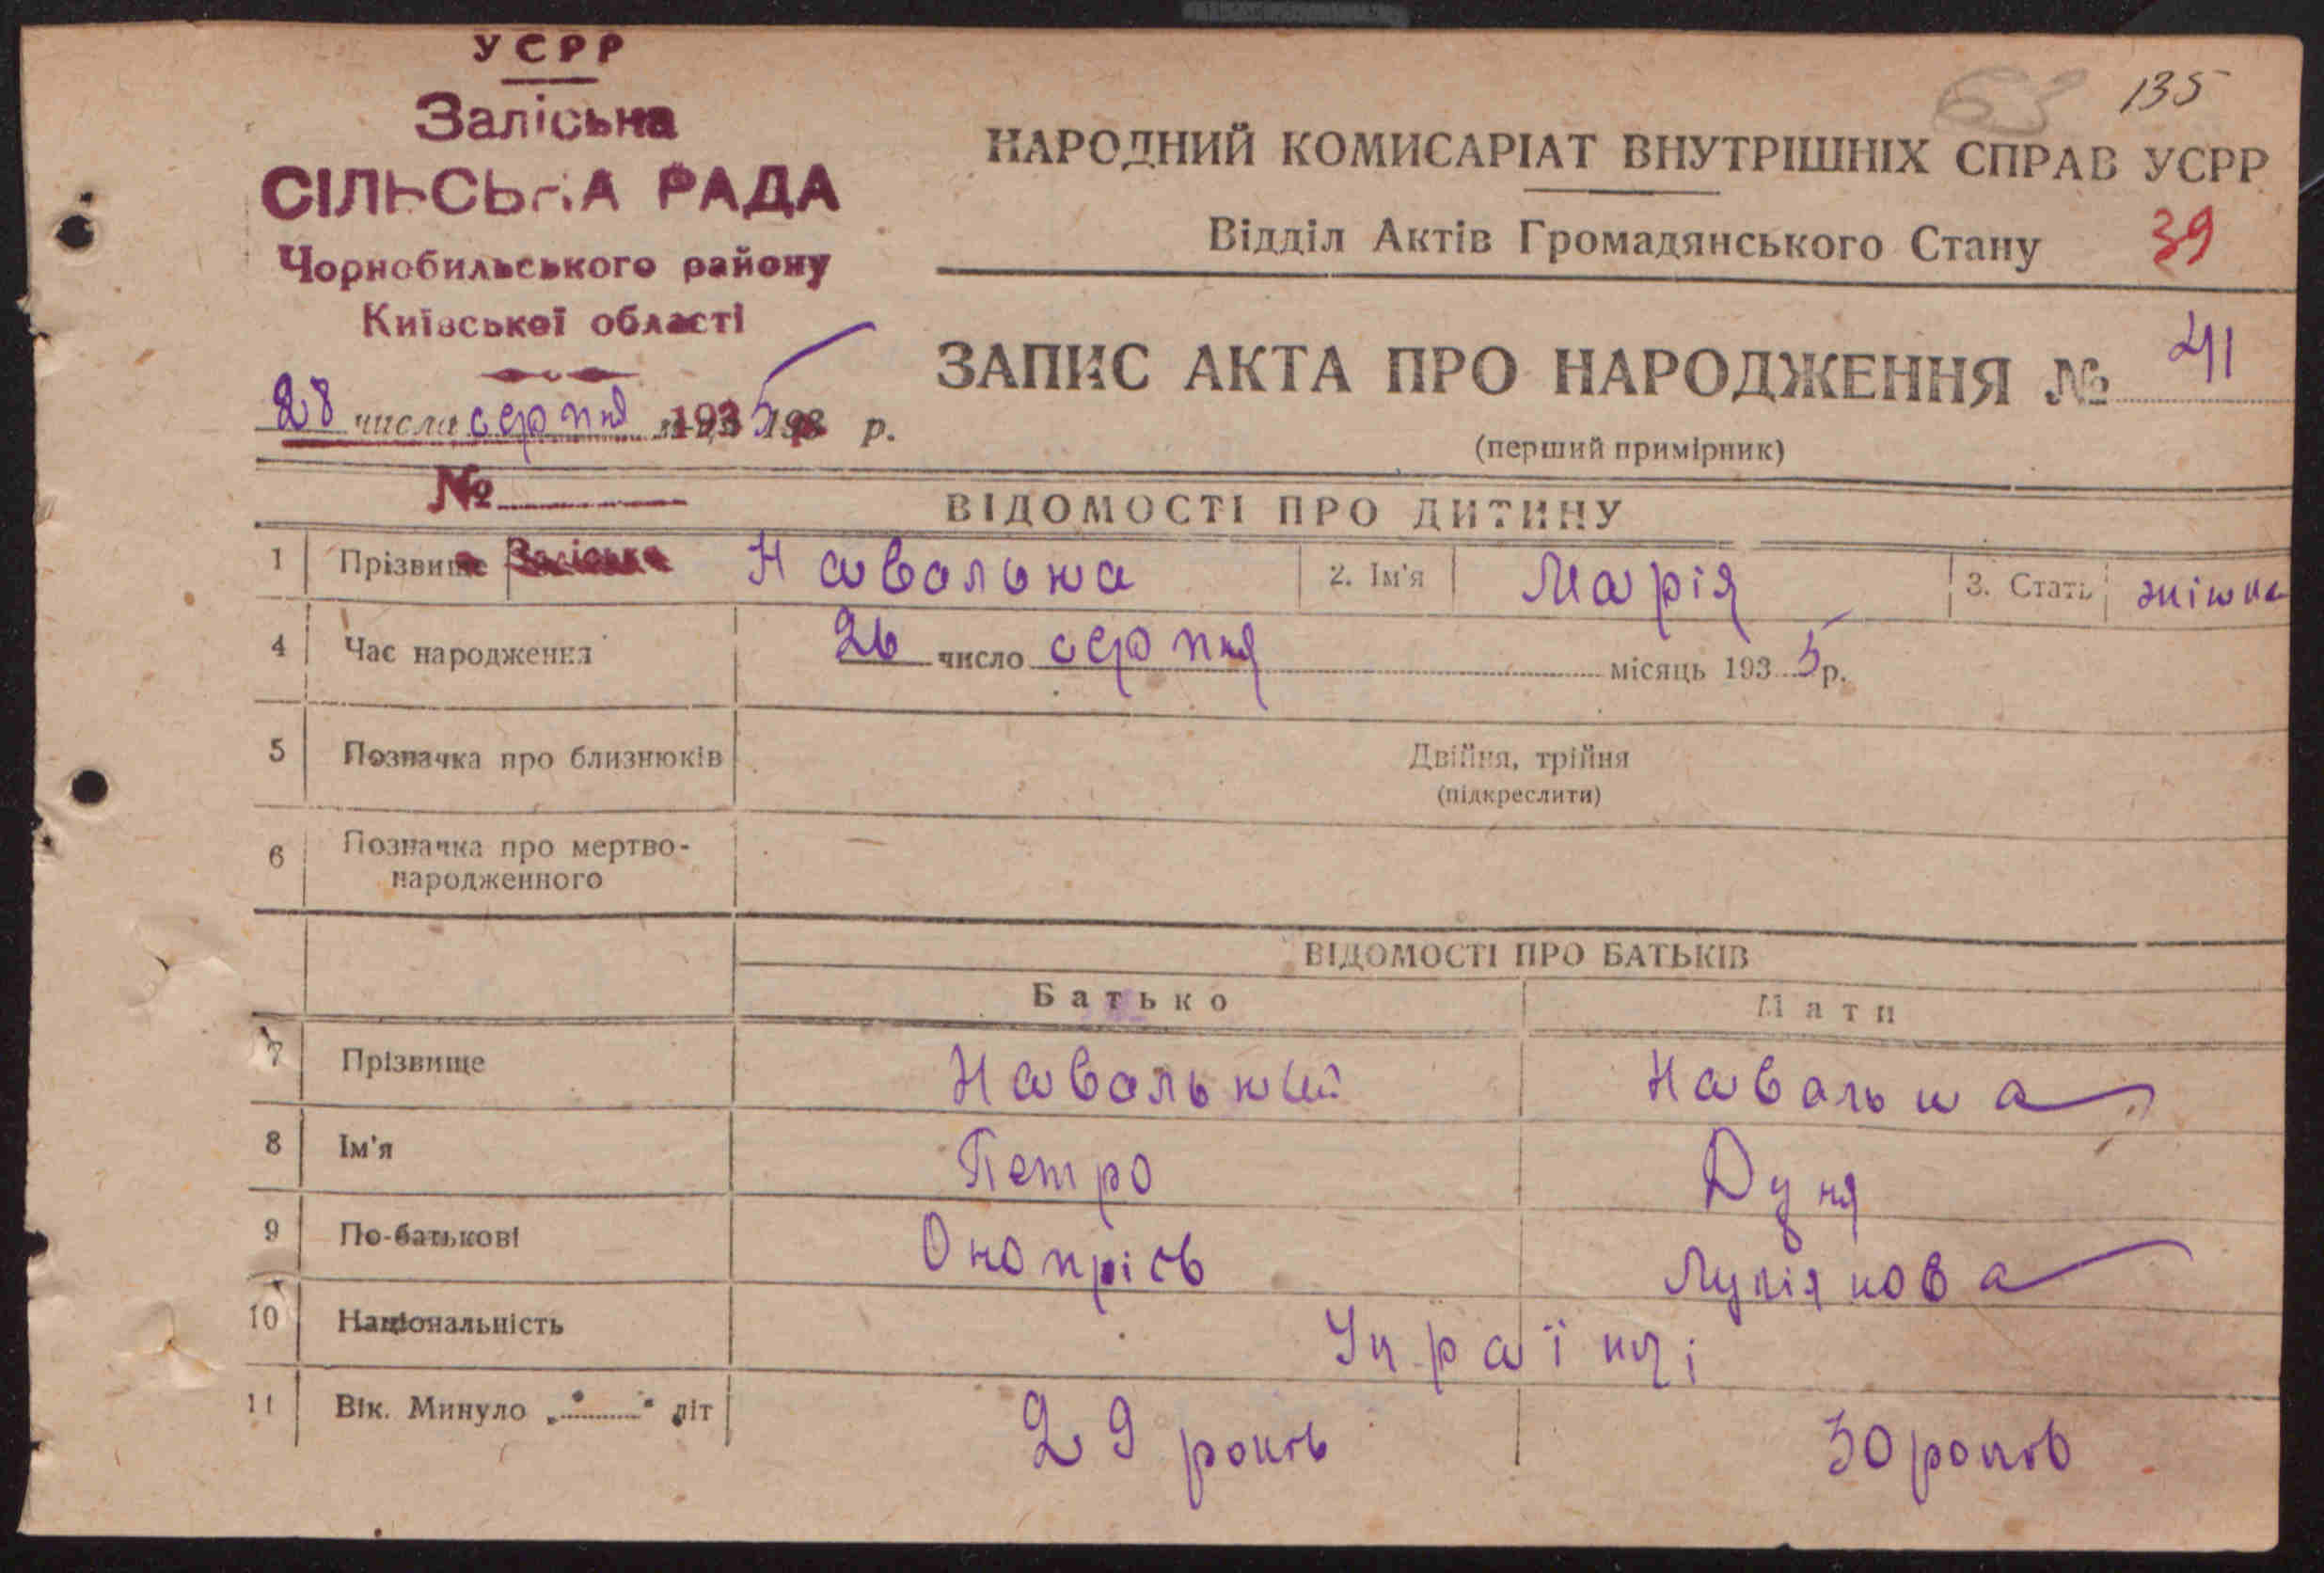 УСРР
Заліська
СІЛЬСЬКА РАДА
Чорнобильського району
Київської області
28 числа серпня 1935 193 р.
№
63 135
НАРОДНИЙ КОМИСАРІАТ ВНУТРІШНІХ СПРАВ УСРР
Відділ Актів Громадянського Стану 39
ЗАПИС АКТА ПРО НАРОДЖЕННЯ № 41
(перший примірник)
ВІДОМОСТІ ПРО ДИТИНУ
1 Прізвище Навольна 2. Ім'я Марія 3. Стать жіноча
4 Час народження 26 число серпня місяць 1935 р.
5 Позначка про близнюків Двійня, трійня
(підкреслити)
6 Позначка про мертво-
народженного
ВІДОМОСТІ ПРО БАТЬКІВ
Батько Мати
7 Прізвище Навольний Навольна
8 Ім'я Петро Дуня
9 По-батькові Онопрієв Лукіянова
10 Національність Українці
11 Вік. Минуло „ " літ 29 років 30 років